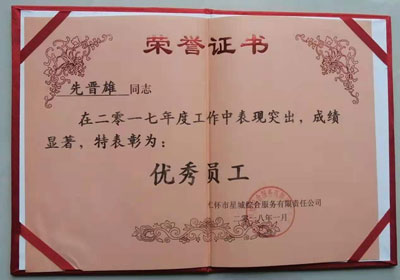 荣誉证书
先晋雄 同志
在二零一七年度工作中表现突出，成绩
显著，特表彰为：
优秀员工
怀市星城综合服务有限责任公司
二零一八年一月